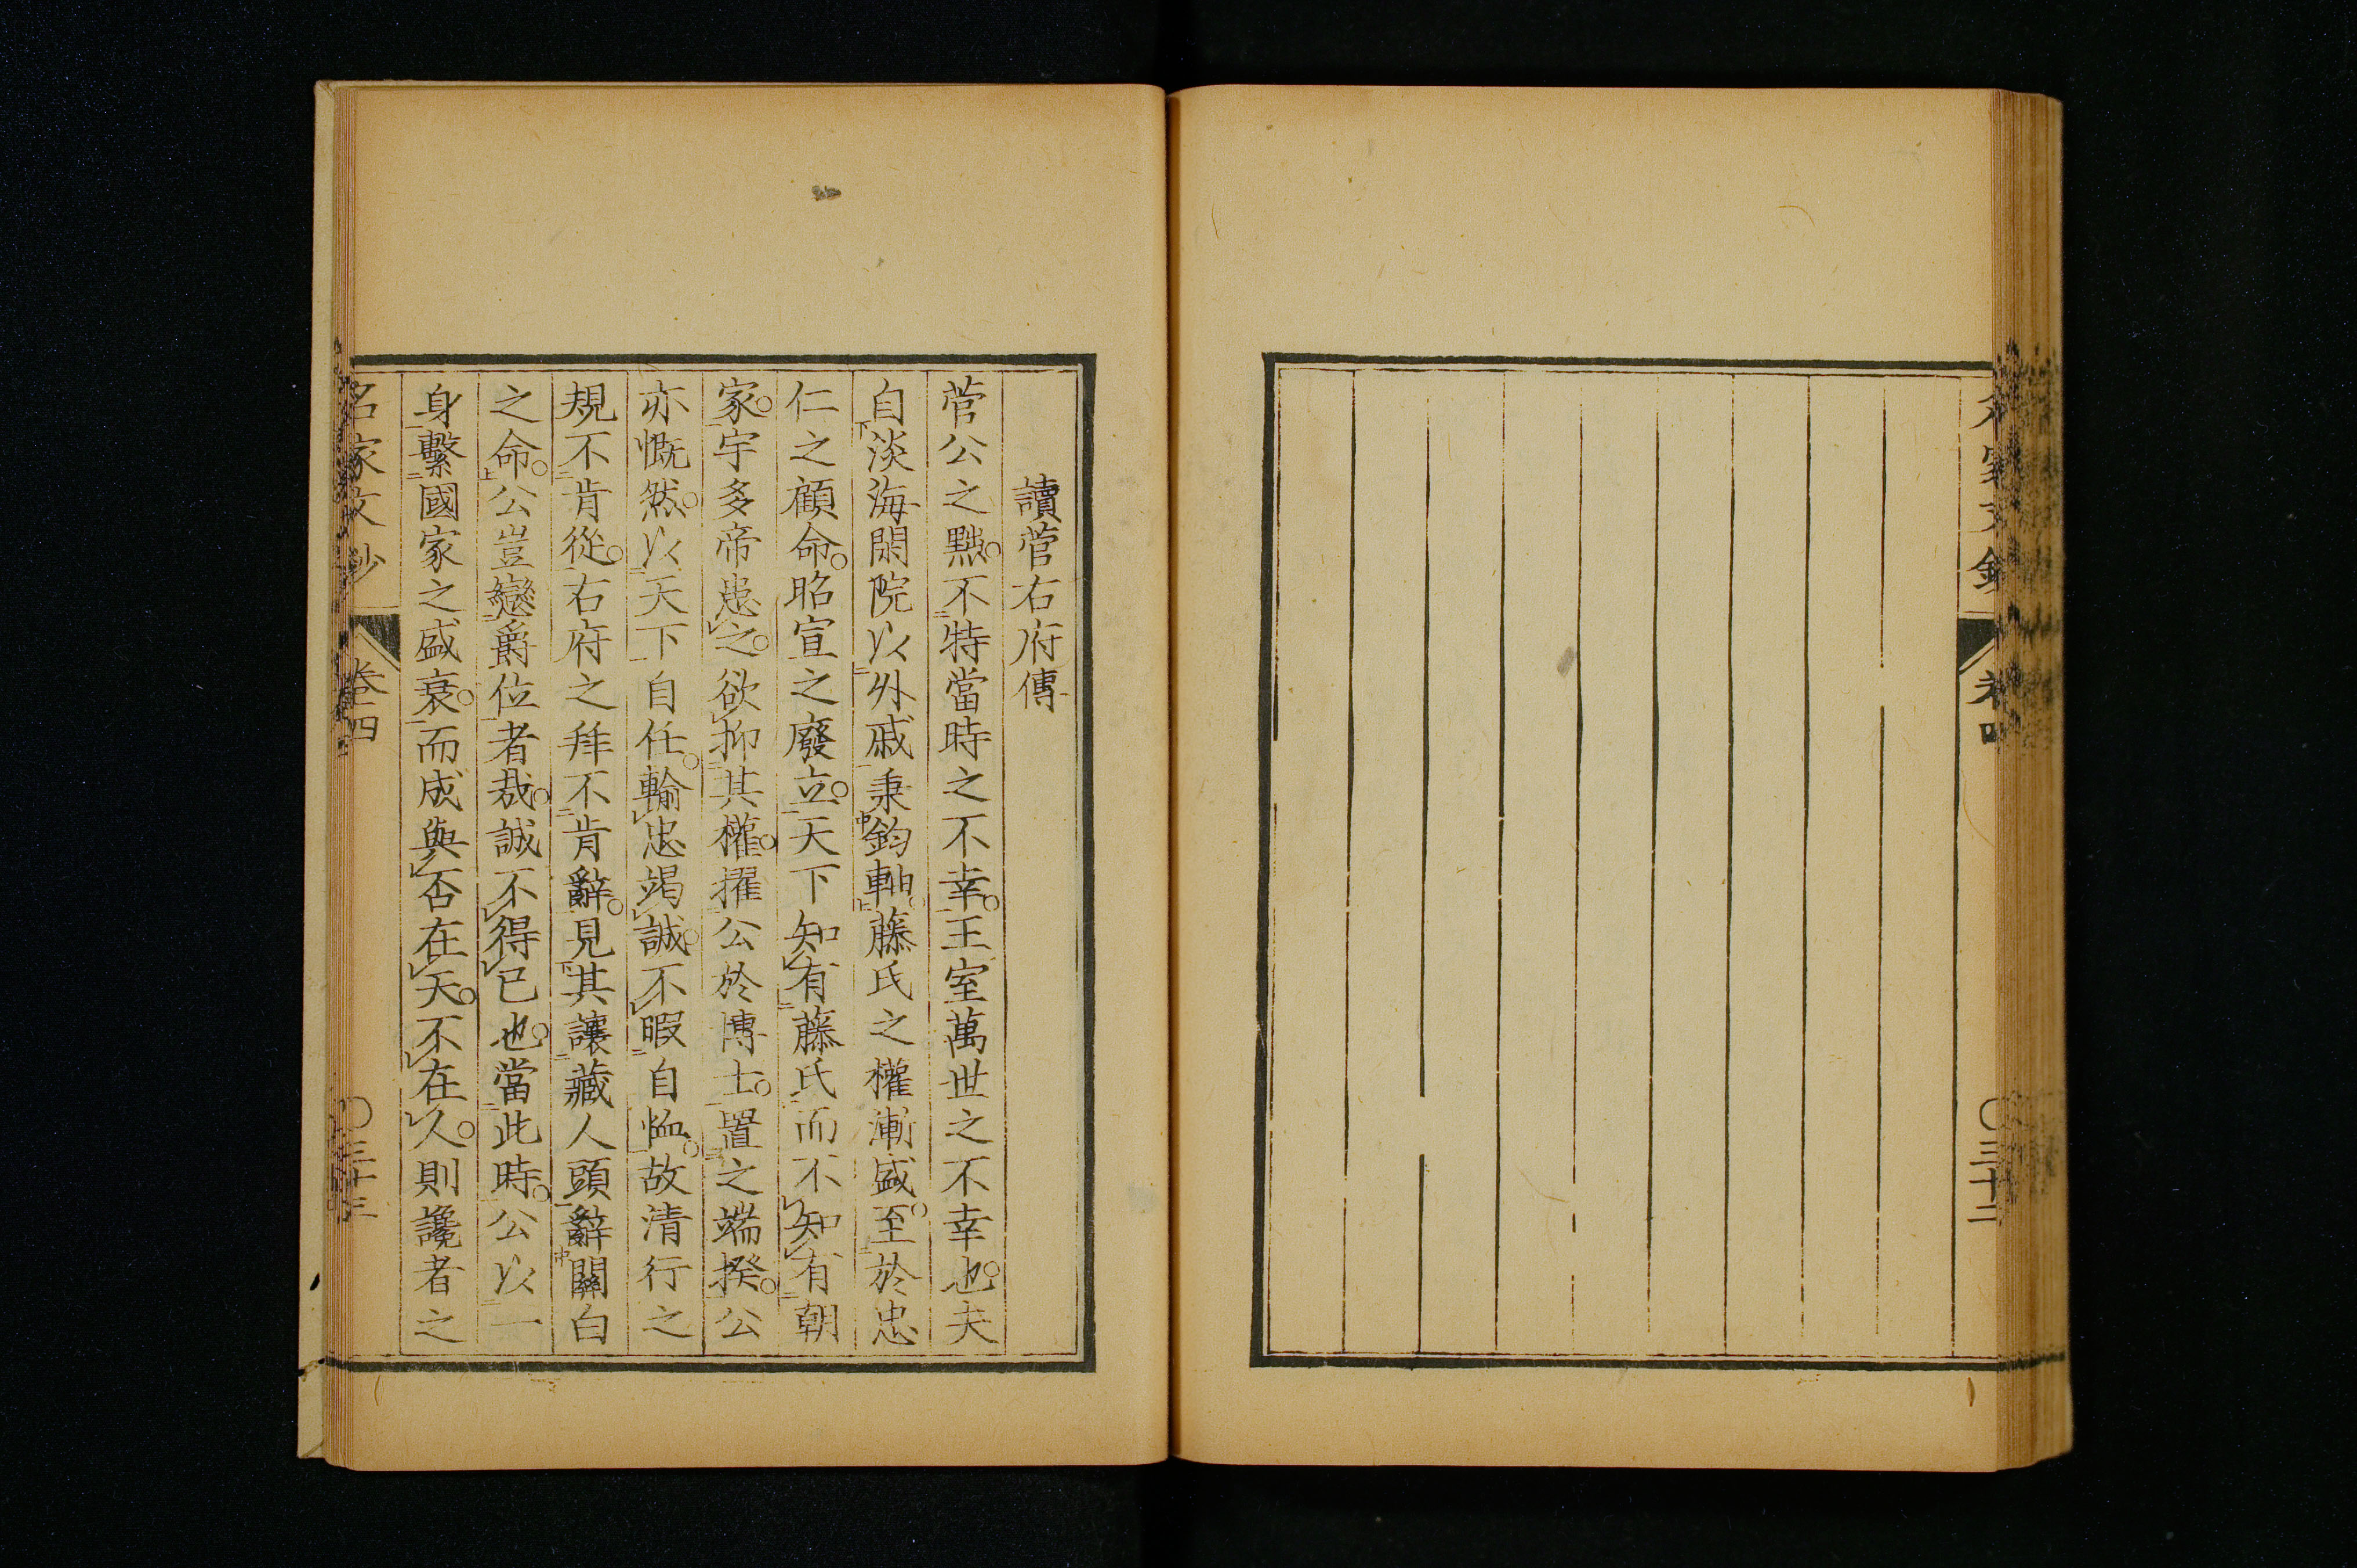 卷四
〇三十二
讀菅右府傳
菅公之黜。不特當時之不幸。王室萬世之不幸也。夫
自淡海閑院以外戚秉鈞軸。藤氏之權漸盛。至於忠
仁之顧命。昭宣之廢立。天下知有藤氏而不知有朝
家。宇多帝患之。欲抑其權。擢公於博士。置之端揆。公
亦慨然。以天下自任。輸忠竭誠。不暇自恤。故清行之
規不肯從。右府之拜不肯辭。見其讓藏人頭辭關白
之命。公豈戀爵位者哉。誠不得已也。當此時。公以一
身繫國家之盛衰。而成與否在天。不在久。則讒者之
名家文抄
卷四
〇三十三